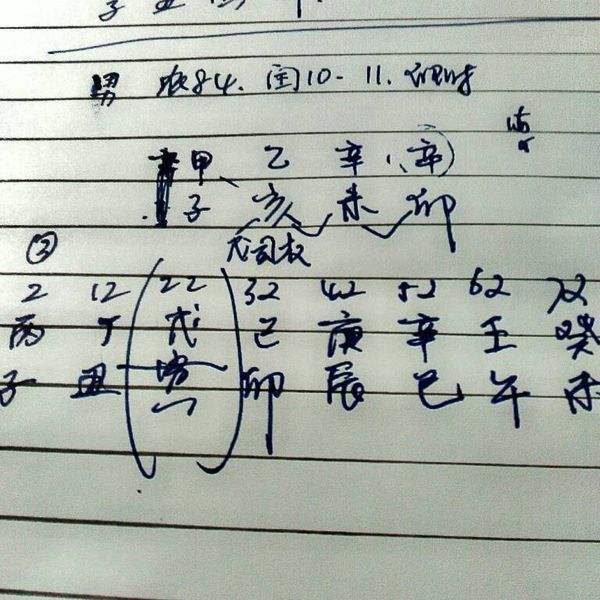 男 农84. 闰10-11. 卯时
甲 乙 辛 (辛)
子 亥 未 卯
②
2 12 22 32 42 52 62 72
丙 丁 戊 己 庚 辛 壬 癸
子 丑 寅 卯 辰 巳 午 未